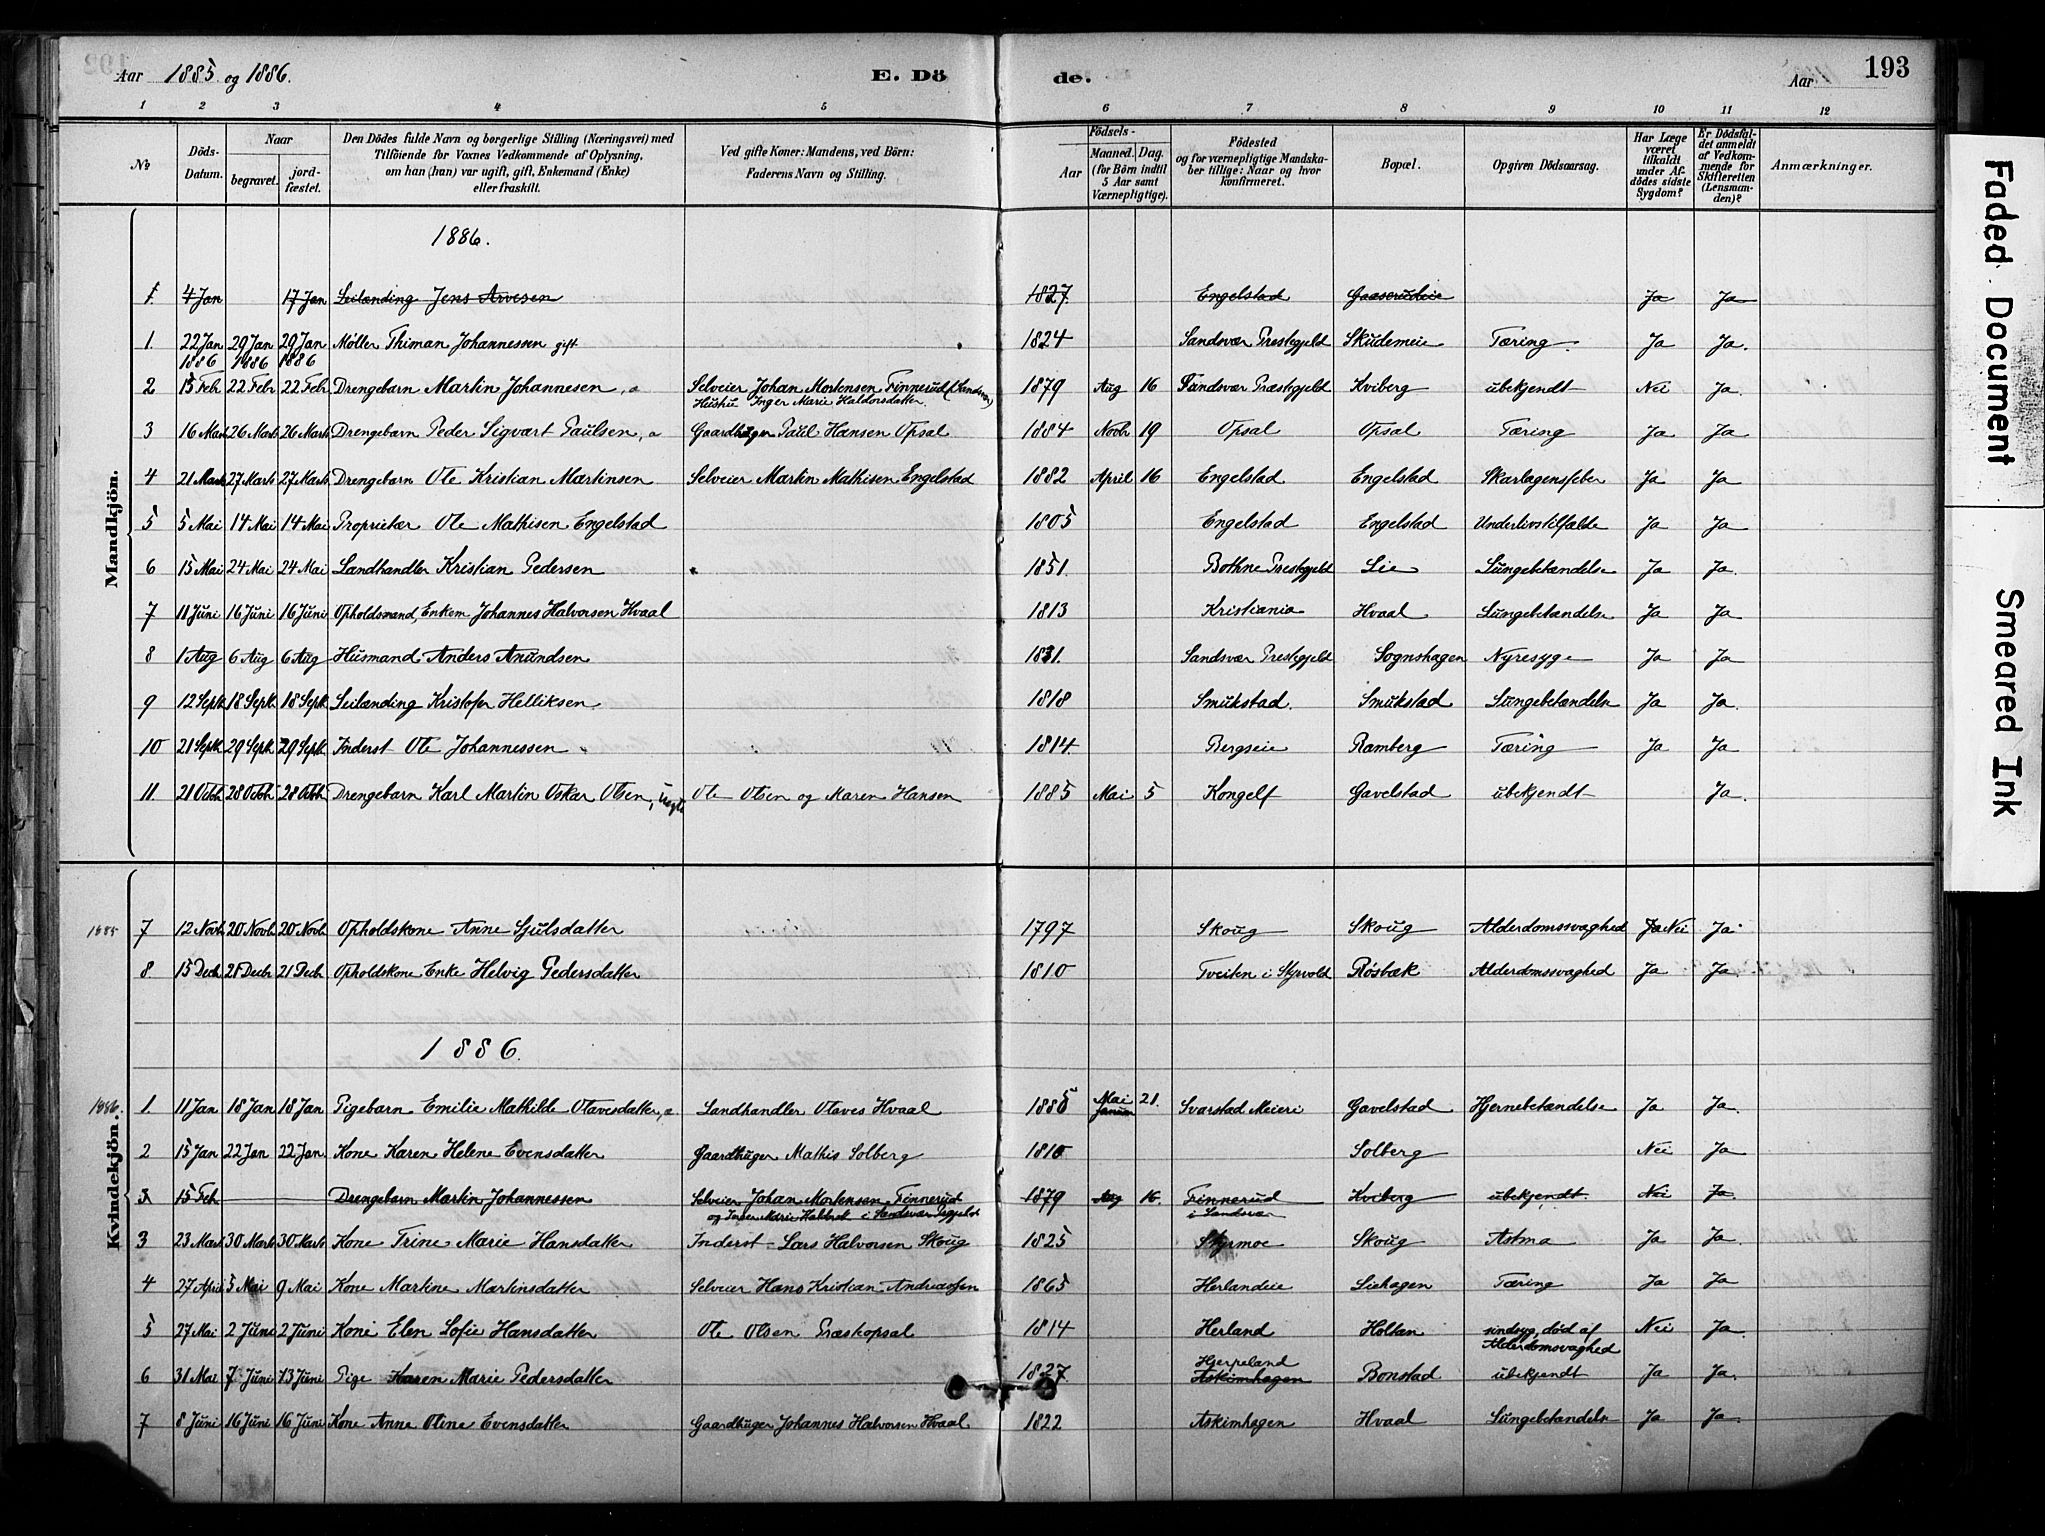 Aar 1885 og 1886. E. Dö de. Aar 193
1 2 3 4 5 6 7 8 9 10 11 12
No
Döds-Datum.
Naar
begravet.
jordfæstet.
Den Dödes fulde Navn og borgerlige Stilling (Næringsvei) med
Tilföiende for Voxnes Vedkommende af Oplysning,
om han (hun) var ugift, gift, Enkemand (Enke)
eller fraskilt.
Ved gifte Koner: Mandens, ved Börn:
Faderens Navn og Stilling.
Födsels-
Aar
Maaned. Dag.
(for Börn indtil
5 Aar samt
Værnepligtige).
Födested
og for værnepligtige Mandskaber tillige: Naar og hvor
konfirmeret.
Bopæl.
Opgiven Dödsaarsag.
Har Læge
været
tilkaldt
under Afdödes sidste
Sygdom?
Er Dödsfaldet anmeldt
af Vedkommende for
Skifteretten
(Lensmanden)?
Anmærkninger.
Mandkjön.
1886.
1. 4 Jan 17 Jan Leilænding Jens Arvesen 1827 Engelstad Gaaserudeie Ja Ja
1. 22 Jan 1886 29 Jan 1886 29 Jan 1886 Møller Thiman Johannessen gift 1824 Sandsvær Prestegjeld Skudemeie Tæring Ja Ja.
2 15 Febr 22 Febr 22 Febr Drengebarn Martin Johannesen, Selveier Johan Mortensen Finnerud (Sandsvær) 1879 Aug 16 Sandsvær Præstegjeld Kviberg ubekjendt Nei Ja.
Hustru Inger Marie Haldorsdatter
3 16 Mart 26 Mart 26 Mart Drengebarn Peder Sigvart Paulsen, Gaardbruger Paul Hansen Opsal 1884 Novb 19 Opsal Opsal Tæring Ja Ja
4 21 Mart 27 Mart 27 Mart Drengebarn Ole Kristian Martinsen Selveier Martin Mathisen Engelstad 1882 April 16 Engelstad Engelstad Skarlagensfeber Ja Ja
5 5 Mai 14 Mai 14 Mai Proprietær Ole Mathisen Engelstad 1805 Engelstad Engelstad Underlivstilfælde Ja Ja
6 15 Mai 24 Mai 24 Mai Landhandler Kristian Pedersen 1851. Bothne Prestegjeld Lie Lungebetændelse Ja Ja.
7 11 Juni 16 Juni 16 Juni Opholdsmand, Enkem Johannes Halvorsen Hvaal 1813 Kristiania Hvaal Lungebetændelse Ja Ja
8 1 Aug 6 Aug 6 Aug Husmand Anders Anundsen 1831. Sandsvær Prestegjeld Sognshagen Nyresyge Ja Ja
9 12 Sept 18 Sept 18 Sept Leilænding Kristofer Helliksen 1818 Smukstad. Smukstad Lungebetændelse Ja Ja.
10 21 Sept 29 Sept 29 Sept. Inderst Ole Johannessen 1814. Bergseie Ramberg Tæring Ja Ja
11 21 Octb 28 Octb 28 Octb Drengebarn Karl Martin Oskar Olsen, uægte Ole Olsen og Maren Hansen 1885 Mai 5 Kongelf Gavelstad ubekjendt Ja.
Kvindekjön.
1885 7 12 Novb 20 Novb 20 Novb Opholdskone Anne Gjulsdatter 1797 Skoug Skoug Alderdomssvaghed Ja Nei Ja
8 15 Decb 21 Decb 21 Decb Opholdskone Enke Helvig Pedersdatter 1810 Tveiten i Styrvold Røsbæk Alderdomssvaghed Ja Ja
1886.
1886. 1. 11 Jan 18 Jan 18 Jan Pigebarn Emilie Mathilde Olavesdatter, Landhandler Olaves Hvaal 1885 Mai 21. Svarstad Meieri Gavelstad Hjernebetændelse Ja Ja.
2 15 Jan 22 Jan 22 Jan. Kone Karen Helene Evensdatter Gaardbruger Mathis Solberg 1810 Solberg Nei Ja
3. 15 Feb Drengebarn Martin Johannessen Selveier Johan Mortensen Finnerud 1879 Aug 16. Finnerud Kviberg ubekjendt. Nei Ja
i Sandsvær
3 23 Mart 30 Mart 30 Mart Kone Trine Marie Hansdatter Inderst Lars Halvorsen Skoug 1825 Styrmoe Skoug Astma Ja Ja.
4 27 April 5 Mai 9 Mai Kone Martine Martinsdatter Selveier Hans Kristian Andreassen 1865 Herlandeie Liehagen Tæring Ja Ja
5 27 Mai 2 Juni 2 Juni Kone Elen Sofie Hansdatter Ole Olsen Præstopsal 1814 Herland Holtan sindsyg, død af Nei Ja
Alderdomsvaghed
6 31 Mai 7 Juni 13 Juni Pige Karen Marie Pedersdatter 1827 Hjerpeland Askimhagen Bonstad ubekjendt Ja Ja.
7 8 Juni 16 Juni 16 Juni Kone Anne Oline Evensdatter Gaardbruger Johannes Halvorsen Hvaal 1822 Askimhagen Hvaal Lungebetændelse Ja Ja
Faded Document
Smeared Ink